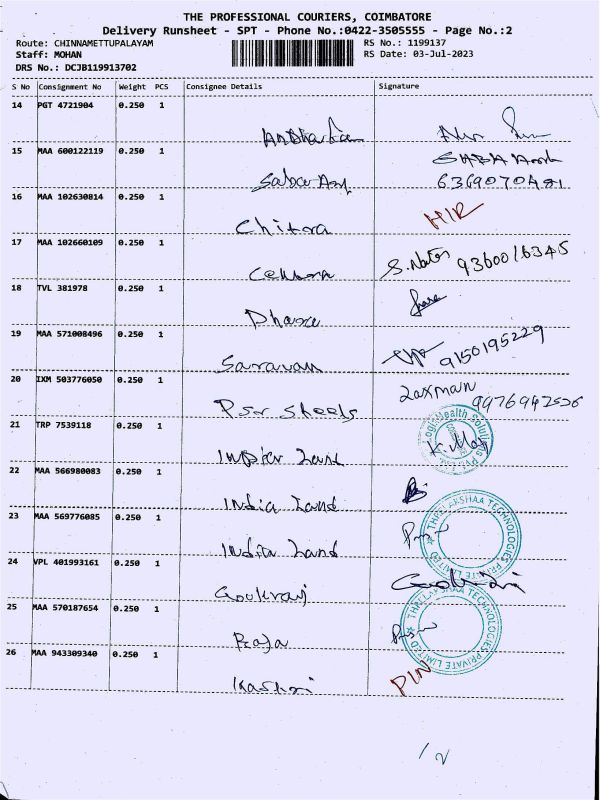 THE PROFESSIONAL COURIERS, COIMBATORE
Delivery Runsheet - SPT - Phone No.:0422-3505555 - Page No.:2
Route: CHINNAMETTUPALAYAM RS No.: 1199137
Staff: MOHAN RS Date: 03-Jul-2023
DRS No.: DCJB119913702
S No Consignment No Weight PCS Consignee Details Signature
14 PGT 4721904 0.250 1
15 MAA 600122119 0.250 1
6369070481
16 MAA 102630814 0.250 1
Chitora
17 MAA 102660109 0.250 1
9360016345
18 TVL 381978 0.250 1
19 MAA 571008496 0.250 1
Saravan 9150195229
20 IXM 503776050 0.250 1 Laxman
Psr Steels
21 TRP 7539118 0.250 1
Land
22 MAA 566980083 0.250 1
India Land
23 MAA 569776085 0.250 1 THRELAKSHAA TECHNOLOGIES PRIVATE LIMITED
India Land
24 VPL 401993161 0.250 1
Goukraj
25 MAA 570187654 0.250 1 THRELAKSHAA TECHNOLOGIES PRIVATE LIMITED
Raja
26 MAA 943309340 0.250 1 PIN